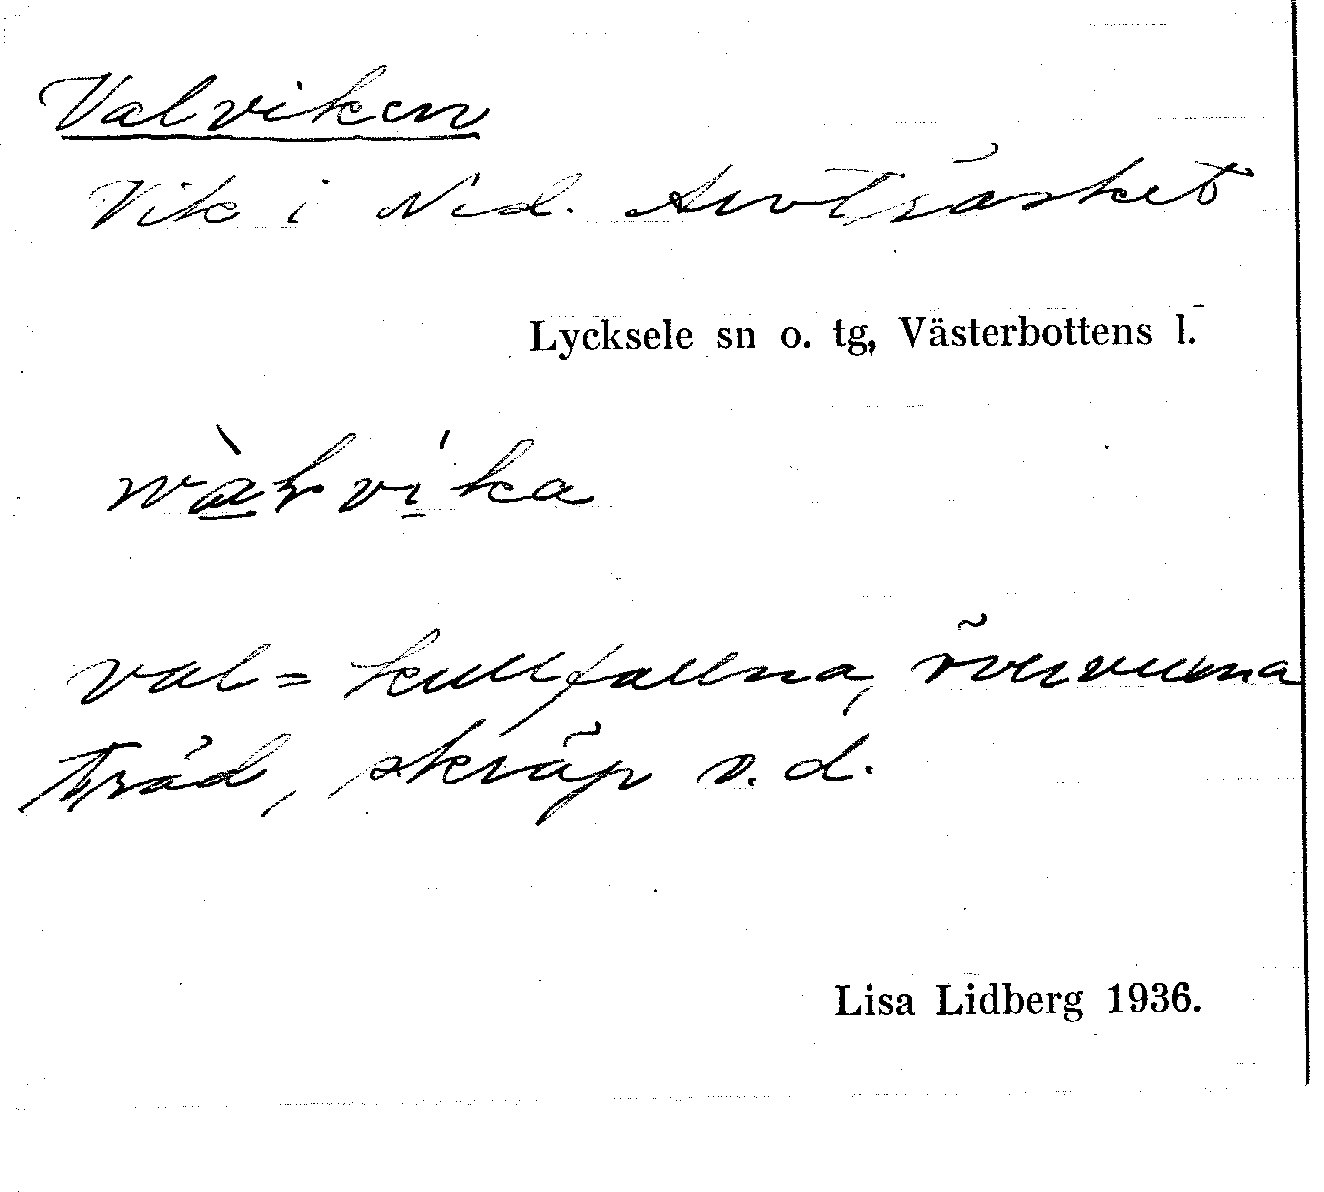 Valviken
Vik i Ned. Arvträsket
Lycksele sn o. tg, Västerbottens l.
val = kullfallna, övervuxna
träd, skräp o.d.
Lisa Lidberg 1936.